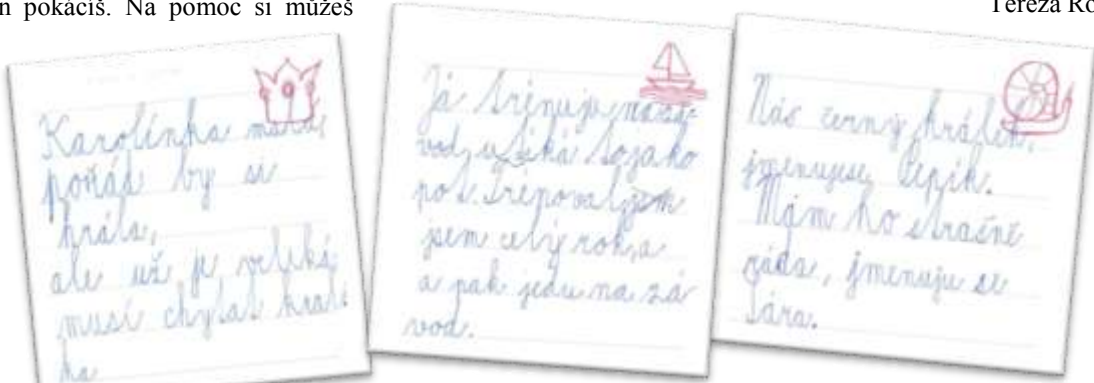 n pokácíš. Na pomoc si můžeš
Tereza Ro
Karolínka
pořád by si
hrála,
ale už je veliká,
musí chytat krále
ka
Já trénuju na zá-
vod, utíká to jako
po trénoval jsem
jsem celý rok, a
a pak jedu na zá
vod.
Náš černý králík,
jmenuje se Pepík.
Mám ho strašně
ráda, jmenuju se
Sára.